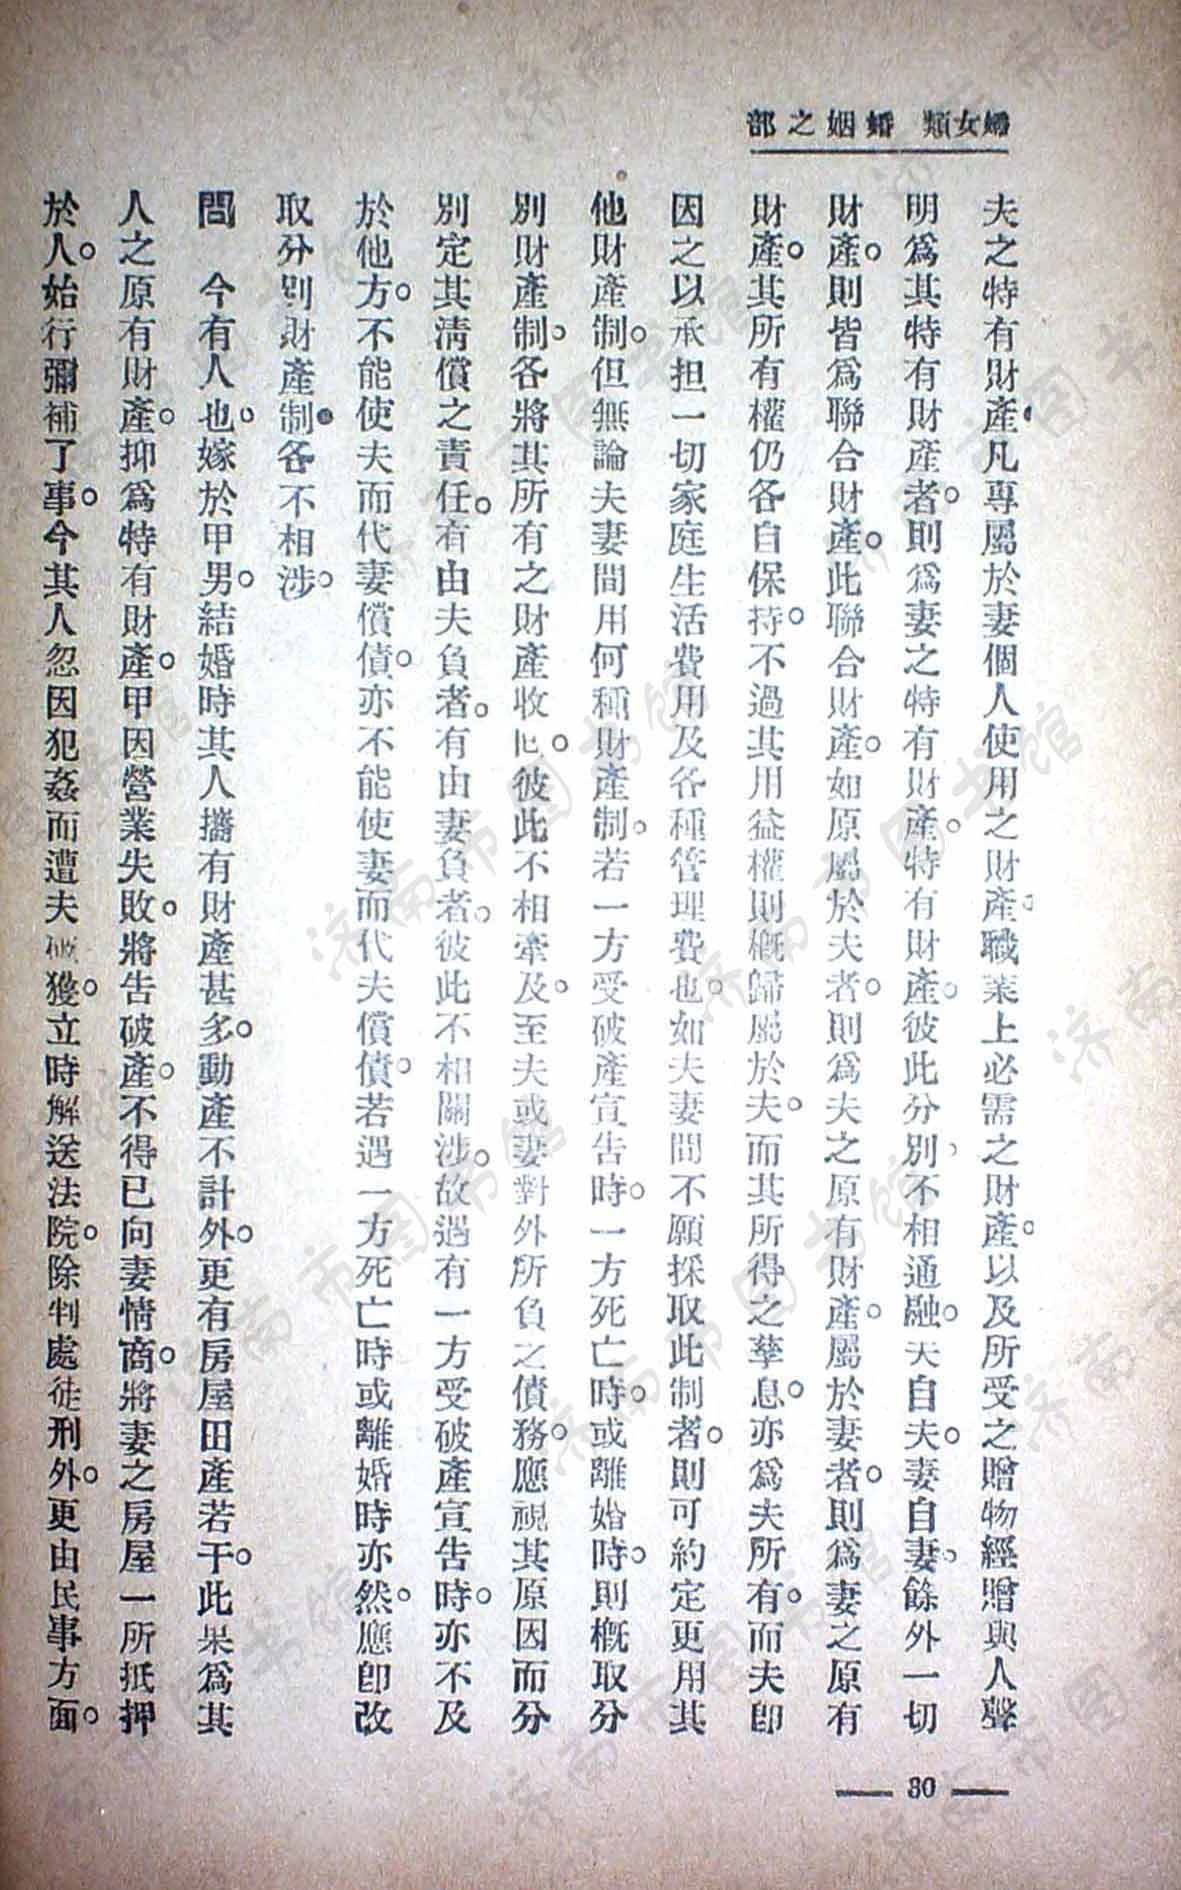 婦女類　婚姻之部
夫之特有財產。凡專屬於妻個人使用之財產。職業上必需之財產。以及所受之贈物經贈與人聲
明爲其特有財產者。則爲妻之特有財產。特有財產。彼此分別、不相通融。夫自夫。妻自妻、餘外一切
財產。則皆爲聯合財產。此聯合財產。如原屬於夫者。則爲夫之原有財產。屬於妻者。則爲妻之原有
財產。其所有權仍各自保持。不過其用益權則概歸屬於夫。而其所得之孳息。亦爲夫所有。而夫卽
因之以承担一切家庭生活費用及各種管理費也。如夫妻間不願採取此制者。則可約定更用其
他財產制。但無論夫妻間用何種財產制。若一方受破產宣告時。一方死亡時。或離婚時。則概取分
別財產制。各將其所有之財產收回。彼此不相牽及。至夫或妻對外所負之債務。應視其原因而分
別定其淸償之責任。有由夫負者。有由妻負者。彼此不相關涉。故遇有一方受破產宣告時。亦不及
於他方。不能使夫而代妻償債。亦不能使妻而代夫償債。若遇一方死亡時或離婚時亦然。應卽改
取分別財產制。各不相涉。
問　今有人也。嫁於甲男。結婚時其人攜有財產甚多。動產不計外。更有房屋田產若干。此果爲其
人之原有財產。抑爲特有財產。甲因營業失敗。將告破產。不得已向妻情商。將妻之房屋一所抵押
於人。始行彌補了事。今其人忽因犯姦而遭夫破獲。立時解送法院。除判處徒刑外。更由民事方面。
80
济南市图书馆